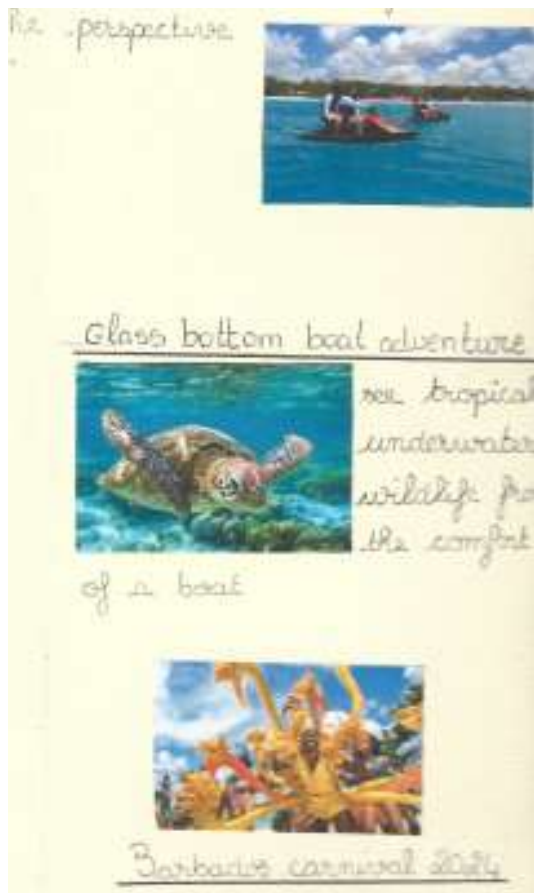 perspective
Glass bottom boat adventure
see tropical
underwater
wildlife
the comfort
of a boat
Barbados carnival 2024